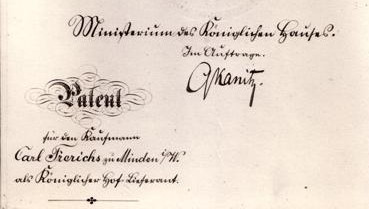 Ministerium des Königlichen Hauses.
Im Auftrage.
Kanitz.
Patent
für den Kaufmann
Carl Frerichs zu Minden i/W.
als Königlicher Hof-Lieferant.